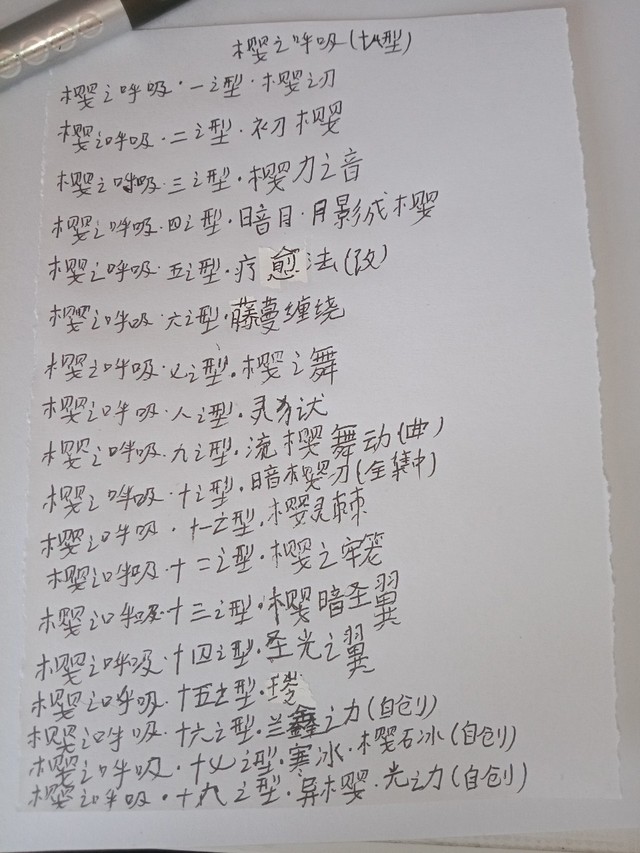 樱之呼吸(十八型)
樱之呼吸·一之型·樱之刃
樱之呼吸·二之型·初樱
樱之呼吸·三之型·樱力之音
樱之呼吸·四之型·暗目·月影成樱
樱之呼吸·五之型·疗愈法(改)
樱之呼吸·六之型·藤蔓缠绕
樱之呼吸·七之型·樱之舞
樱之呼吸·八之型·灵
樱之呼吸·九之型·流樱舞动(曲)
樱之呼吸·十之型·暗樱刃(全集中)
樱之呼吸·十一之型·樱灵棘
樱之呼吸·十二之型·樱之牢笼
樱之呼吸·十三之型·樱暗圣翼
樱之呼吸·十四之型·圣光之翼
樱之呼吸·十五之型·
樱之呼吸·十六之型·兰鑫之力(自创)
樱之呼吸·十七之型·寒冰·樱石冰(自创)
樱之呼吸·十九之型·异樱·光之力(自创)